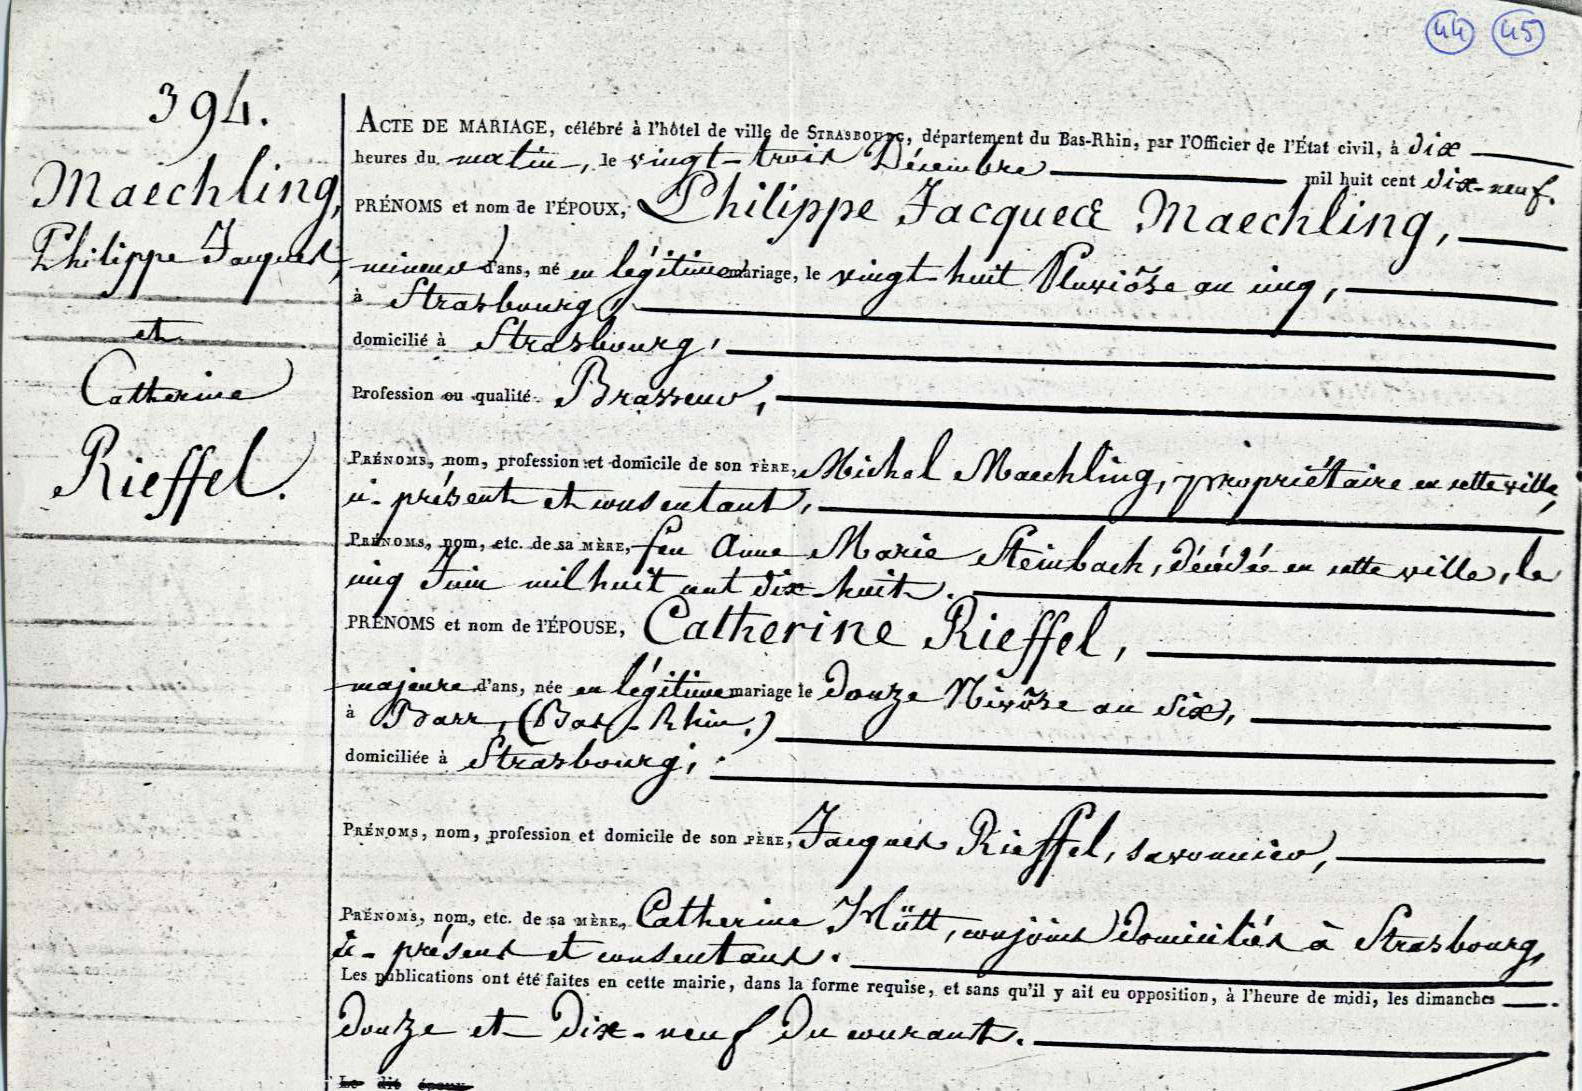 44 45
394.
Maechling,
Philippe Jacques,
et
Catherine
Rieffel.
ACTE DE MARIAGE, célébré à l'hôtel de ville de STRASBOURG, département du Bas-Rhin, par l'Officier de l'État civil, à dix
heures du matin, le vingt-trois Décembre mil huit cent dix-neuf.
PRÉNOMS et nom de l'ÉPOUX, Philippe Jacques Maechling,
mineur d'ans, né en légitime mariage, le vingt-huit Pluviôse an cinq,
à Strasbourg,
domicilié à Strasbourg,
Profession ou qualité Brasseur,
PRÉNOMS, nom, profession et domicile de son PÈRE, Michel Maechling, propriétaire en cette ville,
ci-présent et consentant,
PRÉNOMS, nom, etc. de sa MÈRE, feu Anne Marie Steinbach, décédée en cette ville, le
cinq Juin mil huit cent dix-huit.
PRÉNOMS et nom de l'ÉPOUSE, Catherine Rieffel,
majeure d'ans, née en légitime mariage le douze Nivôse an six,
à Barr, (Bas-Rhin.)
domiciliée à Strasbourg,
PRÉNOMS, nom, profession et domicile de son PÈRE, Jacques Rieffel, savonnier,
PRÉNOMS, nom, etc. de sa MÈRE, Catherine Hütt, conjoints domiciliés à Strasbourg,
ci-présens et consentans.
Les publications ont été faites en cette mairie, dans la forme requise, et sans qu'il y ait eu opposition, à l'heure de midi, les dimanches
douze et dix-neuf du courant.
Le dit époux